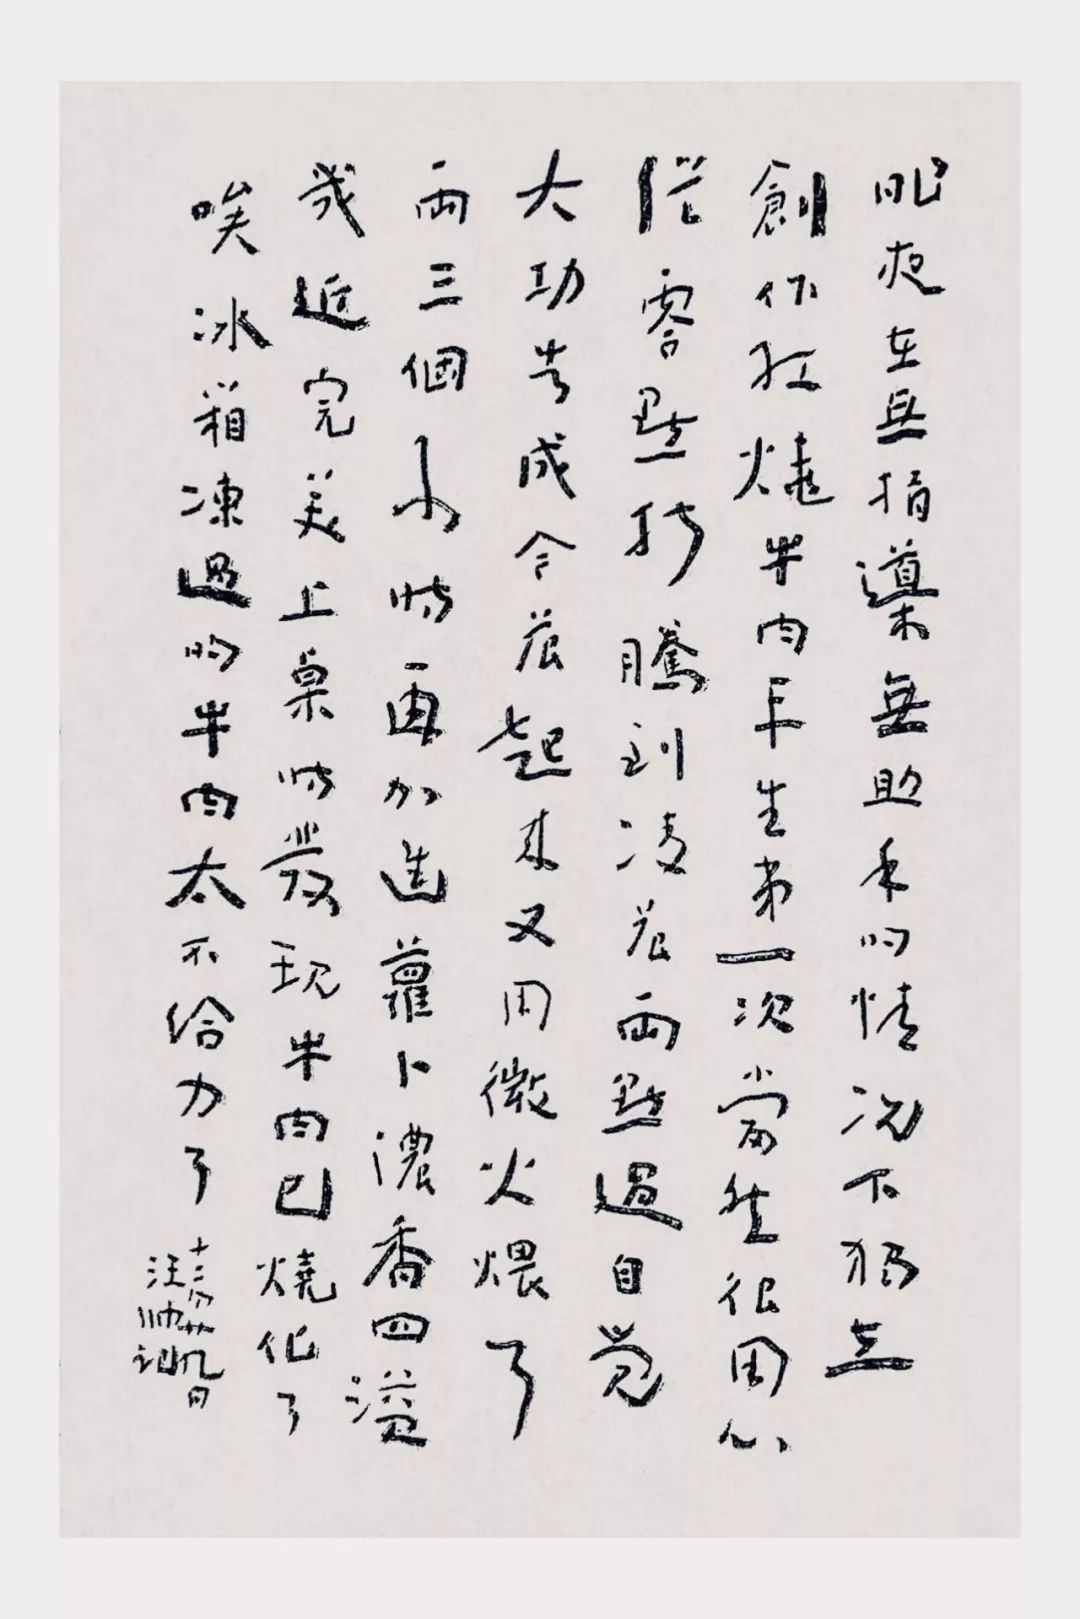 昨夜在無指導無助手的情況下獨立
創作紅燒牛肉平生第一次當然很用心
從零點折騰到凌晨兩點過自覺
大功告成今晨起來又用微火煨了
兩三個小時再加進蘿卜濃香四溢
幾近完美上桌時發現牛肉已燒化了
唉冰箱凍過的牛肉太不給力了
十二月廿九日
汪帥記